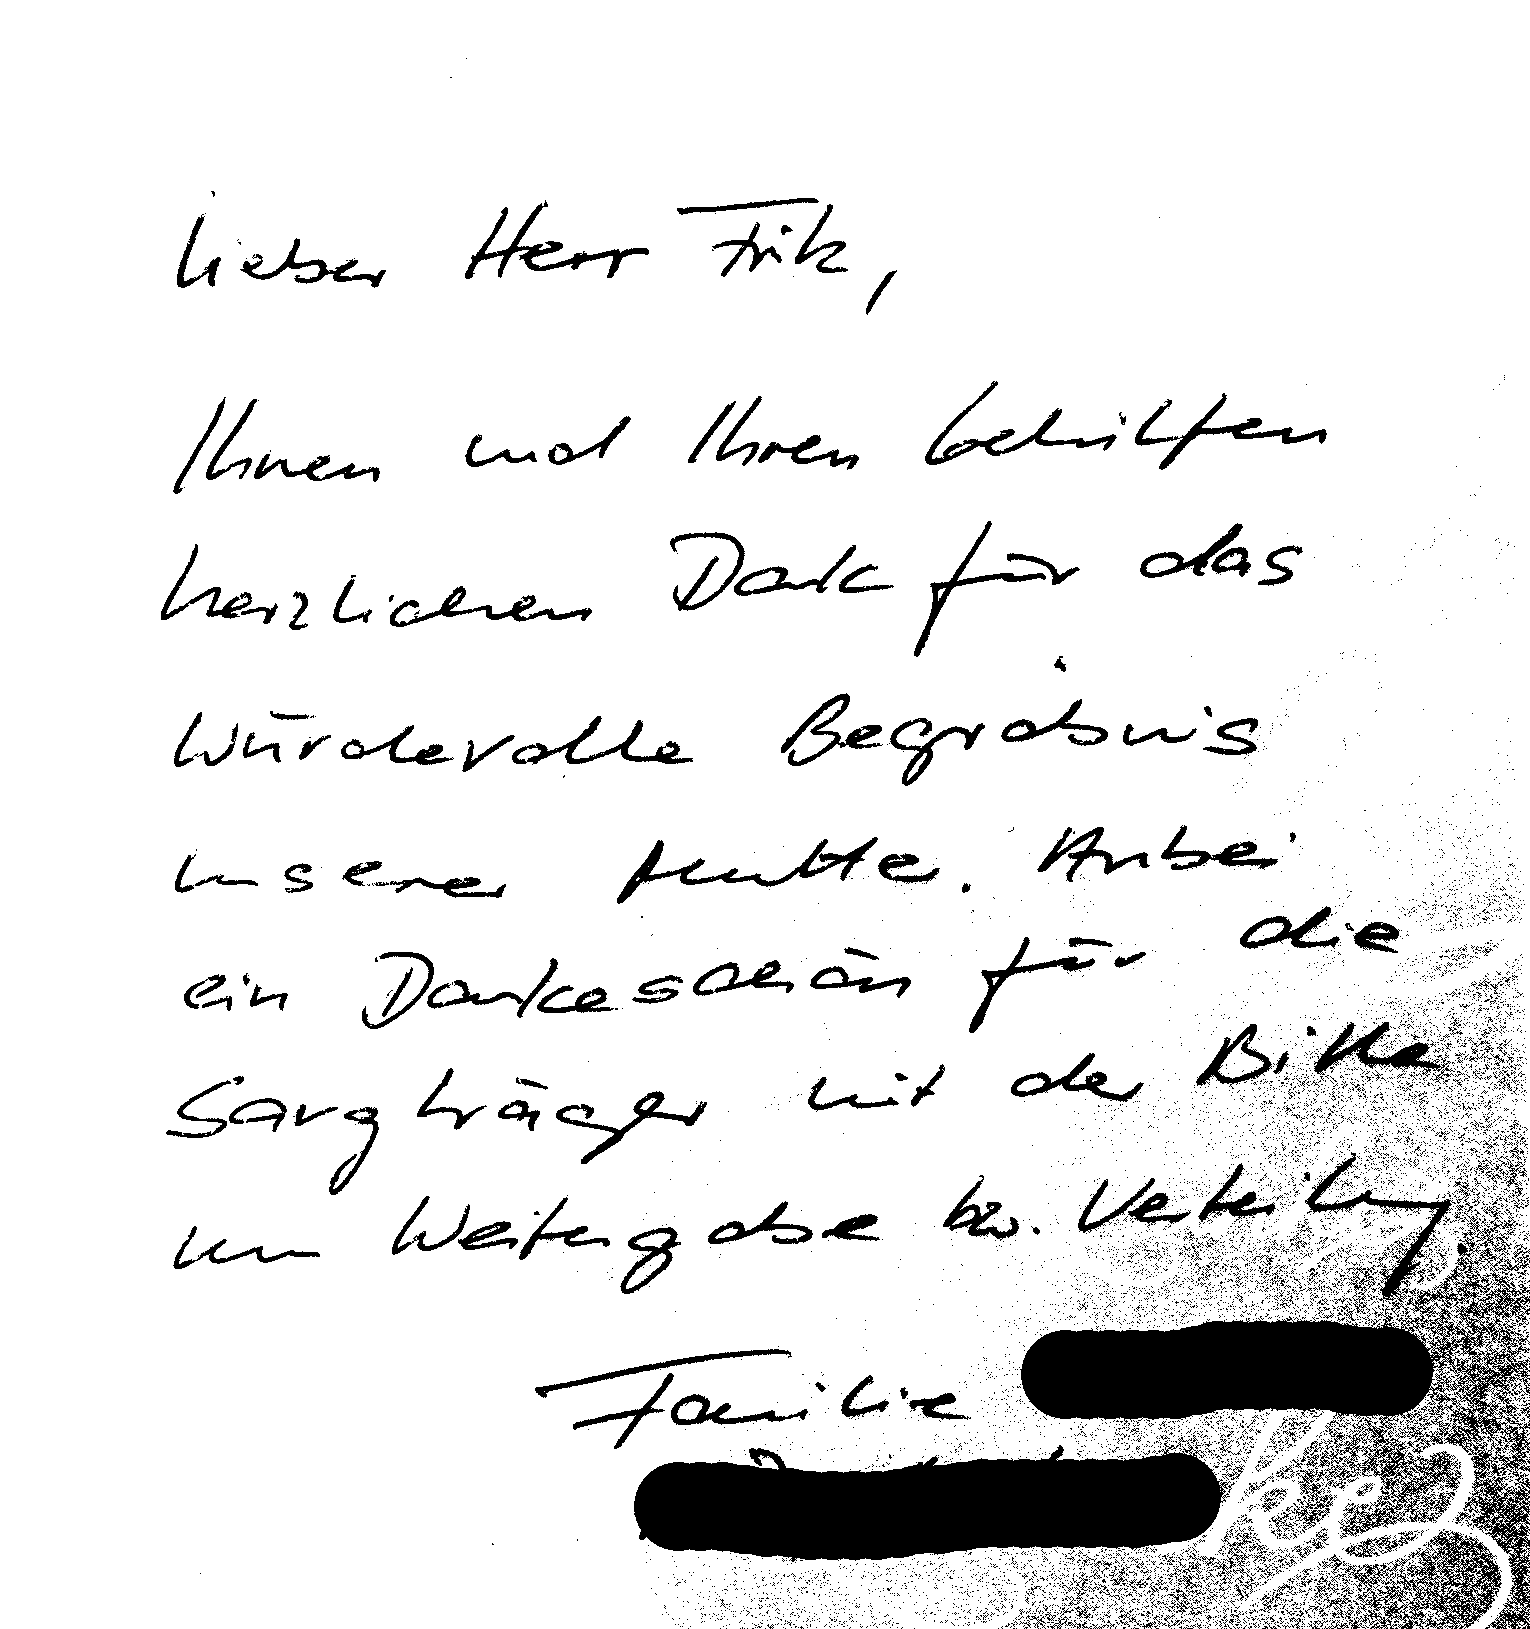 Lieber Herr Frik,
Ihnen und Ihren Gehilfen
herzlichen Dank für das
würdevolle Begräbnis
unserer Mutter. Anbei
ein Dankeschön für die
Sargträger mit der Bitte
um Weitergabe bzw. Verteilung.
Familie